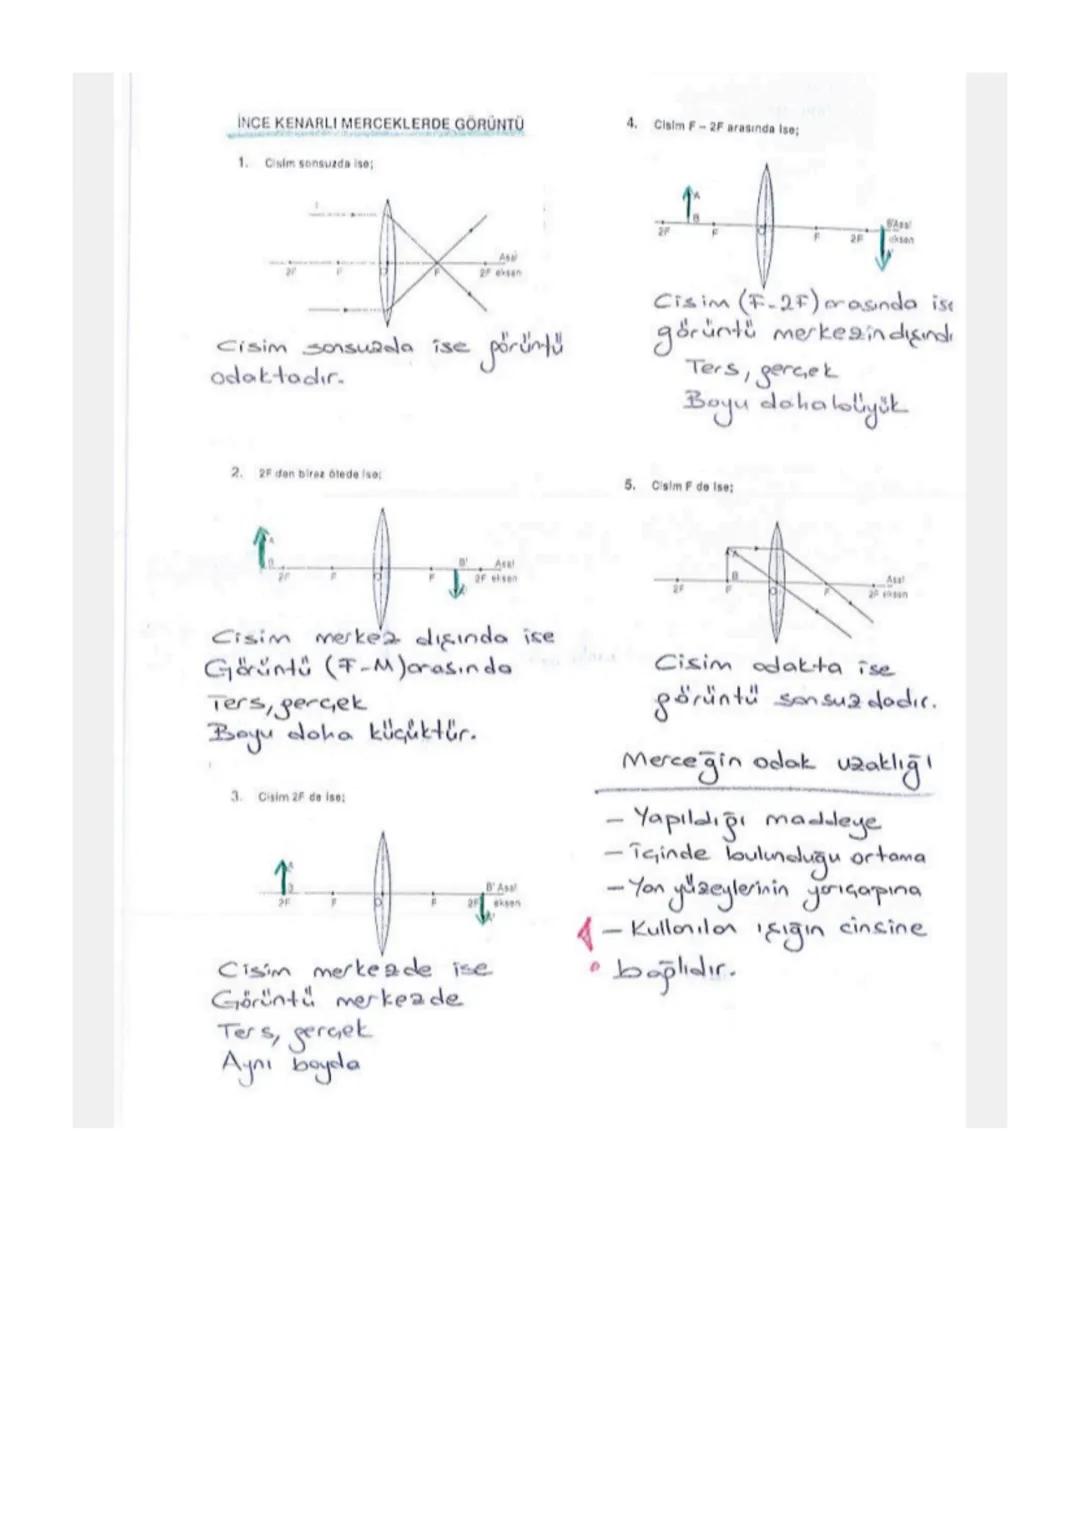 İNCE KENARLI MERCEKLERDE GÖRÜNTÜ
1. Cisim sonsuzda ise;
2F F O F 2F
Asal
eksen
Cisim sonsuzda ise görüntü
odaktadır.
2. 2F den biraz ötede ise;
A
B
2F F O F B' 2F
Asal
eksen
Cisim merkez dışında ise
Görüntü (F-M) arasında
Ters, gerçek
Boyu daha küçüktür.
3. Cisim 2F de ise;
A
2F F O F 2F
B' Asal
eksen
A'
Cisim merkezde ise
Görüntü merkezde
Ters, gerçek
Aynı boyda
4. Cisim F – 2F arasında ise;
A
B
2F F O F 2F
B' Asal
eksen
A'
Cisim (F-2F) arasında ise
görüntü merkezin dışında
Ters, gerçek
Boyu daha büyük
5. Cisim F de ise;
A
B
2F F O F 2F
Asal
eksen
Cisim odakta ise
görüntü sonsuzdadır.
Merceğin odak uzaklığı
- Yapıldığı maddeye
- İçinde bulunduğu ortama
- Yan yüzeylerinin yarıçapına
- Kullanılan ışığın cinsine
bağlıdır.